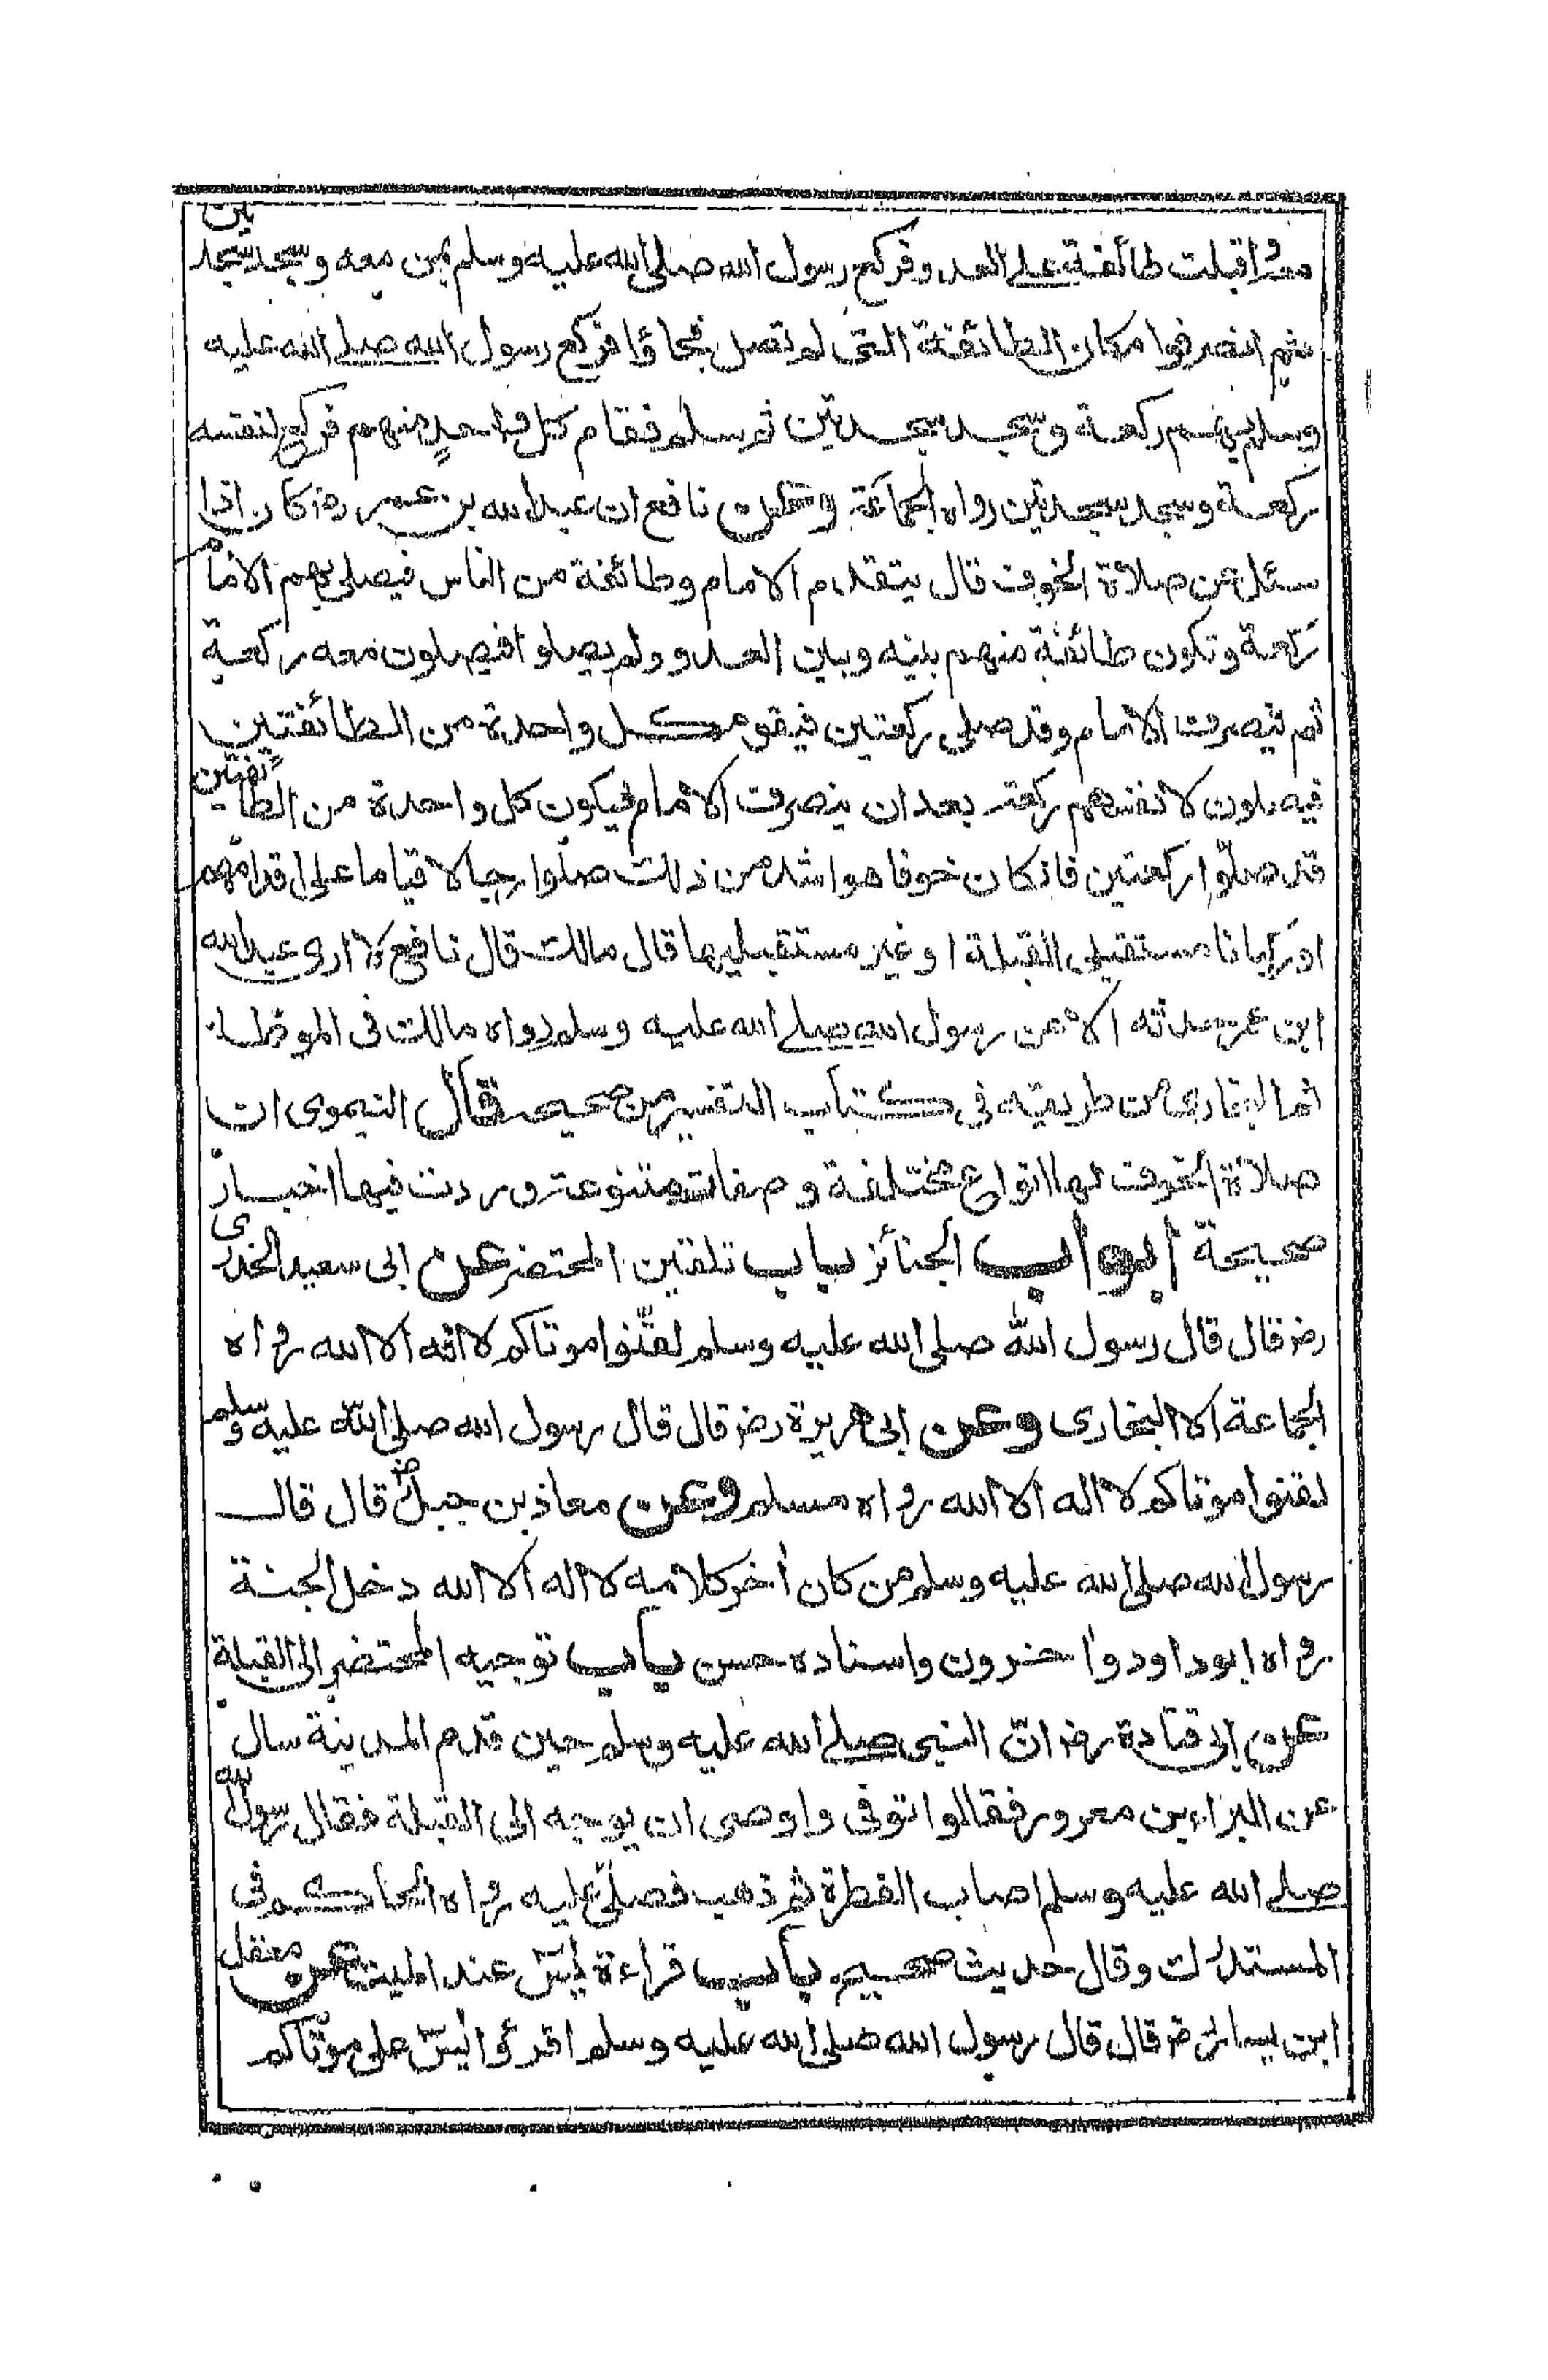 معه واقبلت طائفة على العدو فركع رسول الله صلى الله عليه وسلم بمن معه وسجد سجدتين
ثم انصرفوا مكان الطائفة التى لم تصل فجاؤا فركع رسول الله صلى الله عليه
وسلم بهم ركعة وسجد سجدتين ثم سلم فقام كل واحد منهم فركع لنفسه
ركعة وسجد سجدتين رواه الجماعة وعن نافع ان عبد الله بن عمر رض كان اذا
سئل عن صلاة الخوف قال يتقدم الامام وطائفة من الناس فيصلى بهم الامام
ركعة وتكون طائفة منهم بينه وبين العدو ولم يصلوا فيصلون معه ركعة
ثم ينصرف الامام وقد صلى ركعتين فيقوم كل واحدة من الطائفتين
فيصلون لانفسهم ركعة بعد ان ينصرف الامام فيكون كل واحدة من الطائفتين
قد صلوا ركعتين فان كان خوفا هو اشد من ذلك صلوا رجالا قياما على اقدامهم
او ركبانا مستقبلى القبلة او غير مستقبليها قال مالك قال نافع لا ارى عبد الله
ابن عمر حدثه الا عن رسول الله صلى الله عليه وسلم رواه مالك فى الموطا
ثم البخارى من طريقه فى كتاب التفسير من صحيحه قال النيموى ان
صلاة الخوف لها انواع مختلفة وصفات متنوعة وردت فيها اخبار
صحيحة ابواب الجنائز باب تلقين المحتضر عن ابى سعيد الخدرى
رض قال قال رسول الله صلى الله عليه وسلم لقنوا موتاكم لا اله الا الله رواه
الجماعة الا البخارى وعن ابى هريرة رض قال قال رسول الله صلى الله عليه وسلم
لقنوا موتاكم لا اله الا الله رواه مسلم وعن معاذ بن جبل رض قال قال
رسول الله صلى الله عليه وسلم من كان أخر كلامه لا اله الا الله دخل الجنة
رواه ابو داود وأخرون واسناده حسن باب توجيه المحتضر الى القبلة
عن ابى قتادة رض ان النبى صلى الله عليه وسلم حين قدم المدينة سال
عن البراء بن معرور فقالوا توفى واوصى ان يوجه الى القبلة فقال رسول الله
صلى الله عليه وسلم اصاب الفطرة ثم ذهب فصلى عليه رواه الحاكم فى
المستدرك وقال حديث صحيح باب قراءة يٰسٓ عند الميت عن معقل
ابن يسار رض قال قال رسول الله صلى الله عليه وسلم اقرؤا يٰسٓ على موتاكم